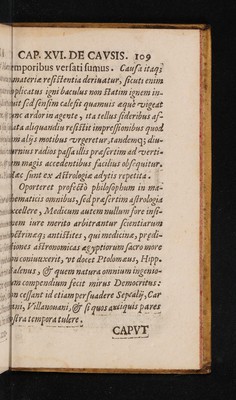 CAP. XVI. DE CAVSIS. 109
temporibus versati sumus. Causa itaq;
materiæ resistentia deriuatur, sicuti enim
implicatus igni baculus non statim ignem in-
sed sensim calefit quamuis æque vigeat
tunc ardor in agente, ita tellus sideribus af-
flata aliquandiu resistit impressionibus quod
alijs motibus vrgeretur, tandemq; diu-
turnios rados passa illis præsertim ad verti-
magis accedentibus facilius obsequitur.
Hæc sunt ex Astrologiæ adytis repetita.
Oporteret profectò philosophum in ma-
thematicis omnibus, sed præsertim astrologia
excellere, Medicum autem nullum fore insi-
gnem iure merito arbitrantur scientiarum
doctrinæq; antistites, qui medicinæ, prædi-
ctiones astronomicas ægyptiorum sacro more
coniunxerit, vt docet Ptolomæus, Hipp.
Galenus, & quem natura omnium ingenio-
rum compendium fecit mirus Democritus:
non cessant id etiam persuadere Sepcalij, Car
dani, Villanouani, & si quos antiquis pares
nostra tempora tulere.
CAPVT